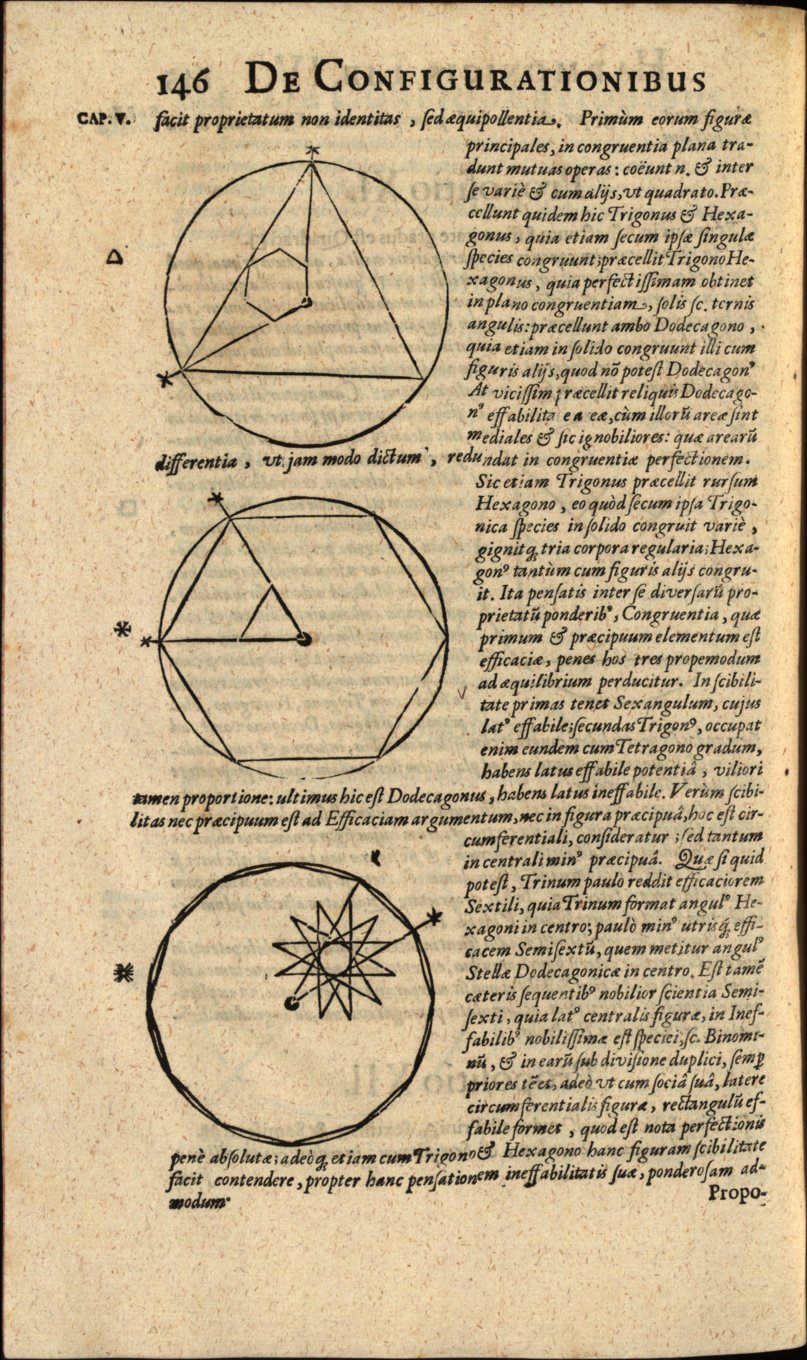 146 DE CONFIGURATIONIBUS
CAP. V. facit proprietatum non identitas, sed æquipollentia. Primùm eorum figuræ
principales, in congruentia plana tra-
dunt mutuas operas: coëunt n. & inter
se variè & cum alijs, ut quadrato. Præ-
cellunt quidem hic Trigonus & Hexa-
gonus, quia etiam secum ipsæ singulæ
species congruunt; præcellit Trigono He-
xagonus, quia perfectissimam obtinet
in plano congruentiam, solis sc. ternis
angulis: præcellunt ambo Dodecagono,
quia etiam in solido congruunt illi cum
figuris alijs, quod nõ potest Dodecagonꝰ
At vicissim præcellit reliquis Dodecago-
nꝰ effabilita e a eæ, cùm illorũ areæ sint
mediales & sic ignobiliores: quæ arearũ
differentia, ut jam modo dictum, redundat in congruentiæ perfectionem.
Sic etiam Trigonus præcellit rursum
Hexagono, eo quòd secum ipsa Trigo-
nica species in solido congruit variè,
gignitq́; tria corpora regularia; Hexa-
gonꝰ tantùm cum figuris alijs congru-
it. Ita pensatis inter se diversarũ pro-
prietatũ ponderibꝰ, Congruentia, quæ
primum & præcipuum elementum est
efficaciæ, penes hos tres propemodum
ad æquilibrium perducitur. In scibili-
tate primas tenet Sexangulum, cujus
latꝰ effabile; secundas Trigonꝰ, occupat
enim eundem cum Tetragono gradum,
habens latus effabile potentiâ, viliori
tamen proportione: ultimus hic est Dodecagonus, habens latus ineffabile. Verùm scibi-
litas nec præcipuum est ad Efficaciam argumentum, nec in figura præcipuâ, hoc est cir-
cumferentiali, consideratur; sed tantum
in centrali minꝰ præcipuâ. Quæ si quid
potest, Trinum paulò reddit efficaciorem
Sextili, quia Trinum format angulꝰ He-
xagoni in centro; paulò minꝰ utrisq́; effi-
cacem Semisextũ, quem metitur angulꝰ
Stellæ Dodecagonicæ in centro. Est tamẽ
cæteris sequentibꝰ nobilior scientia Semi-
sexti, quia latꝰ centralis figuræ, in Inef-
fabilibꝰ nobilissimæ est speciei, sc. Binomi-
nũ, & in earũ subdivisione duplici, semꝑ
priores tẽet, adeò ut cum sociâ suâ, latere
circumferentialis figuræ, rectangulũ ef-
fabile formet, quod est nota perfectionis
penè absolutæ; adeòq́; etiam cum Trigono & Hexagono hanc figuram scibilitate
facit contendere, propter hanc pensationem ineffabilitatis suæ, ponderosam ad-
modum.
Propo-